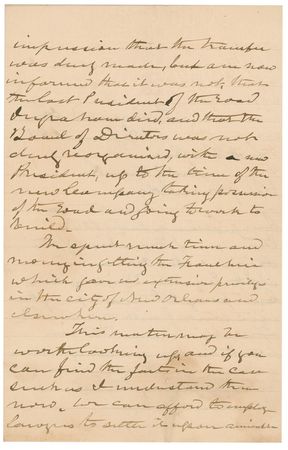 impression that the transfer
was duly made, but am now
informed that it was not, that
the last President of the Road
Ingraham died, and that the
Board of Directors was not
duly reorganized, with a new
President, up to the time of the
new Company taking possession
of the Road and going to work to
build.
We spent much time and
money in getting the Franchise
which gave us extensive privileges
in the city of New Orleans and
elsewhere.
This matter may be
worth looking up, and if you
can find the facts in the case
such as I understand them
now, we can afford to employ
lawyers to settle it upon amicable